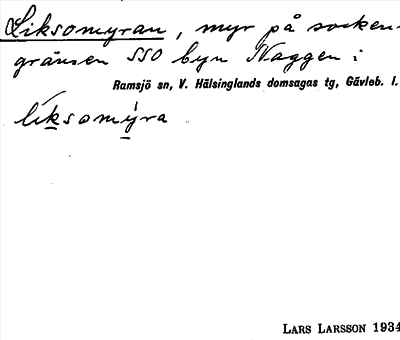 Liksomyran, myr på socken-
gränsen SSO byn Naggen i
Ramsjö sn, V. Hälsinglands domsagas tg, Gävleb. l.
líksomy̍ra
LARS LARSSON 1934